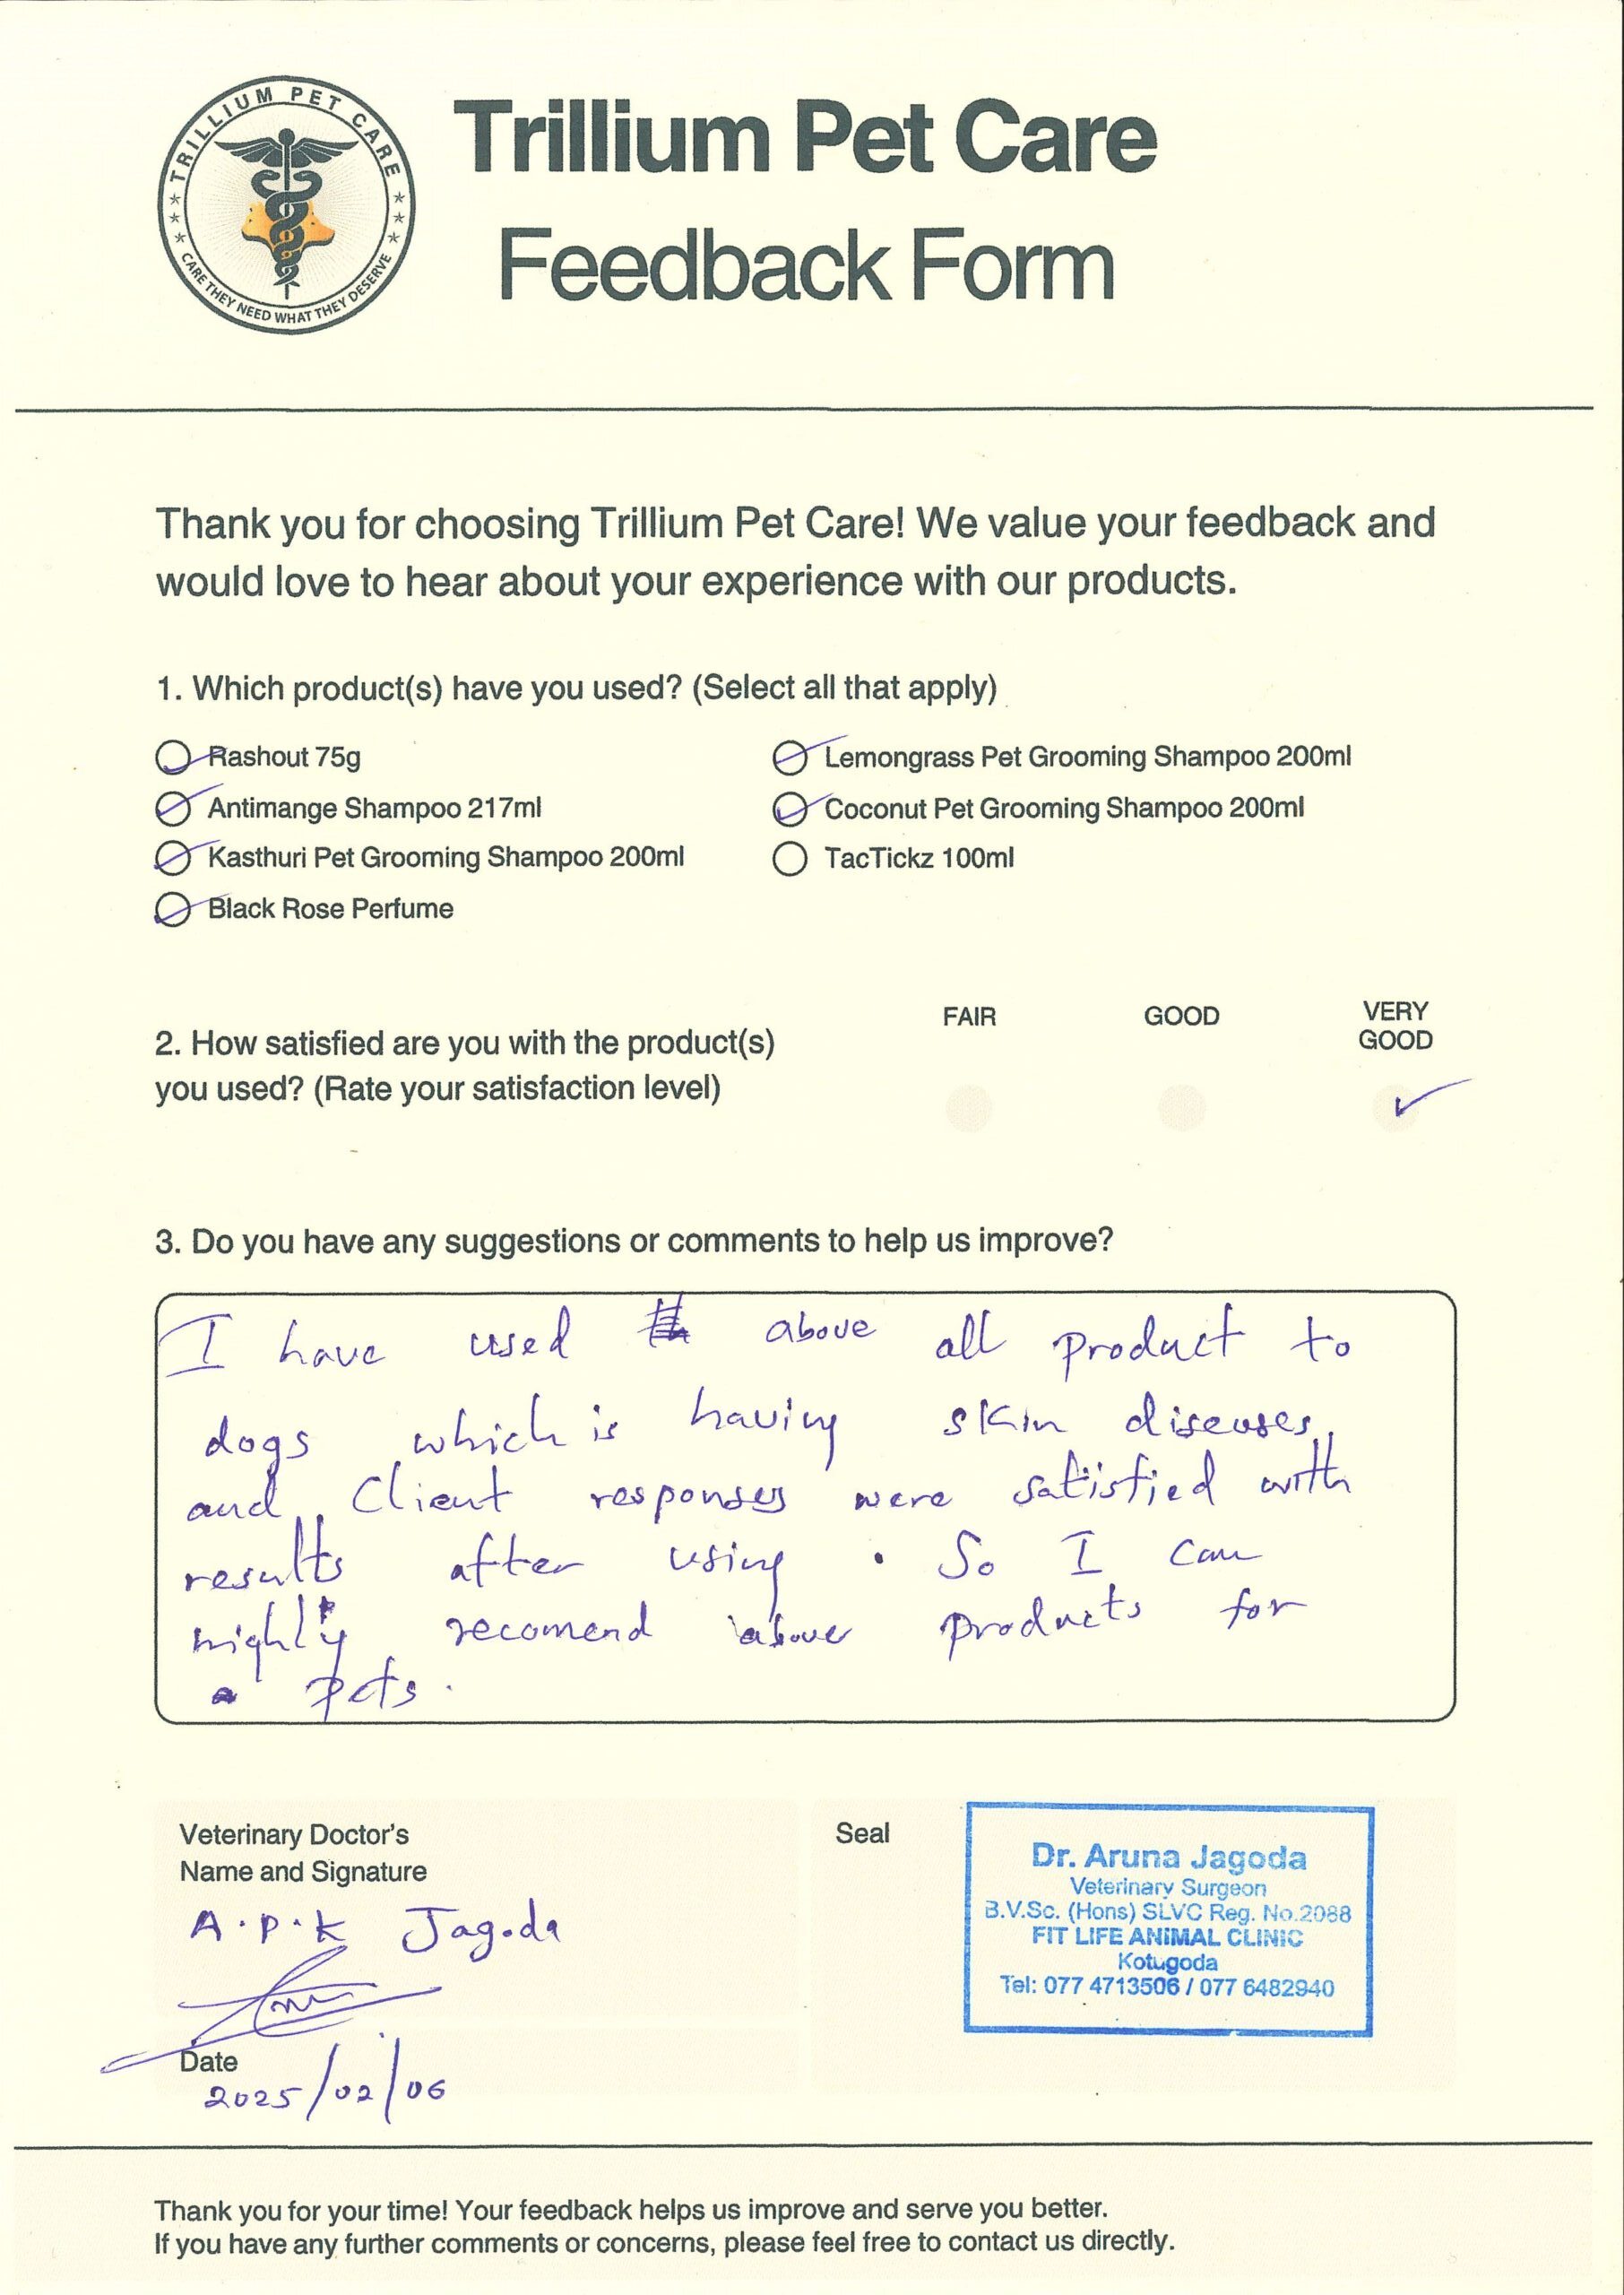 TRILLIUM PET CARE
CARE THEY NEED WHAT THEY DESERVE
Trillium Pet Care
Feedback Form
Thank you for choosing Trillium Pet Care! We value your feedback and
would love to hear about your experience with our products.
1. Which product(s) have you used? (Select all that apply)
Rashout 75g
Lemongrass Pet Grooming Shampoo 200ml
Antimange Shampoo 217ml
Coconut Pet Grooming Shampoo 200ml
Kasthuri Pet Grooming Shampoo 200ml
TacTickz 100ml
Black Rose Perfume
FAIR
GOOD
VERY
GOOD
2. How satisfied are you with the product(s)
you used? (Rate your satisfaction level)
3. Do you have any suggestions or comments to help us improve?
I have used above all product to
dogs which is having skin diseases
and Client responses were satisfied with
results after using . So I can
highly recomend above products for
pets.
Veterinary Doctor's
Name and Signature
A.P.K Jagoda
Date
2025/02/06
Seal
Dr. Aruna Jagoda
Veterinary Surgeon
B.V.Sc. (Hons) SLVC Reg. No.2088
FIT LIFE ANIMAL CLINIC
Kotugoda
Tel: 077 4713506 / 077 6482940
Thank you for your time! Your feedback helps us improve and serve you better.
If you have any further comments or concerns, please feel free to contact us directly.